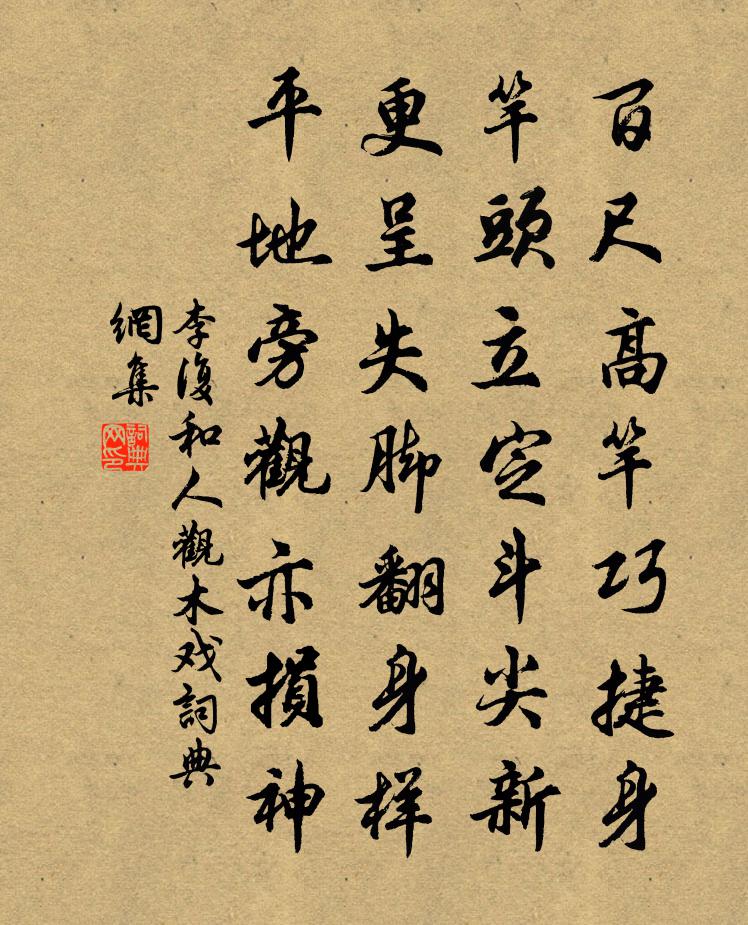 百尺高竿巧捷身
竿頭立定斗尖新
更呈失脚翻身样
平地旁觀亦損神
李復和人觀木戏詞典
網集
詞典
网印